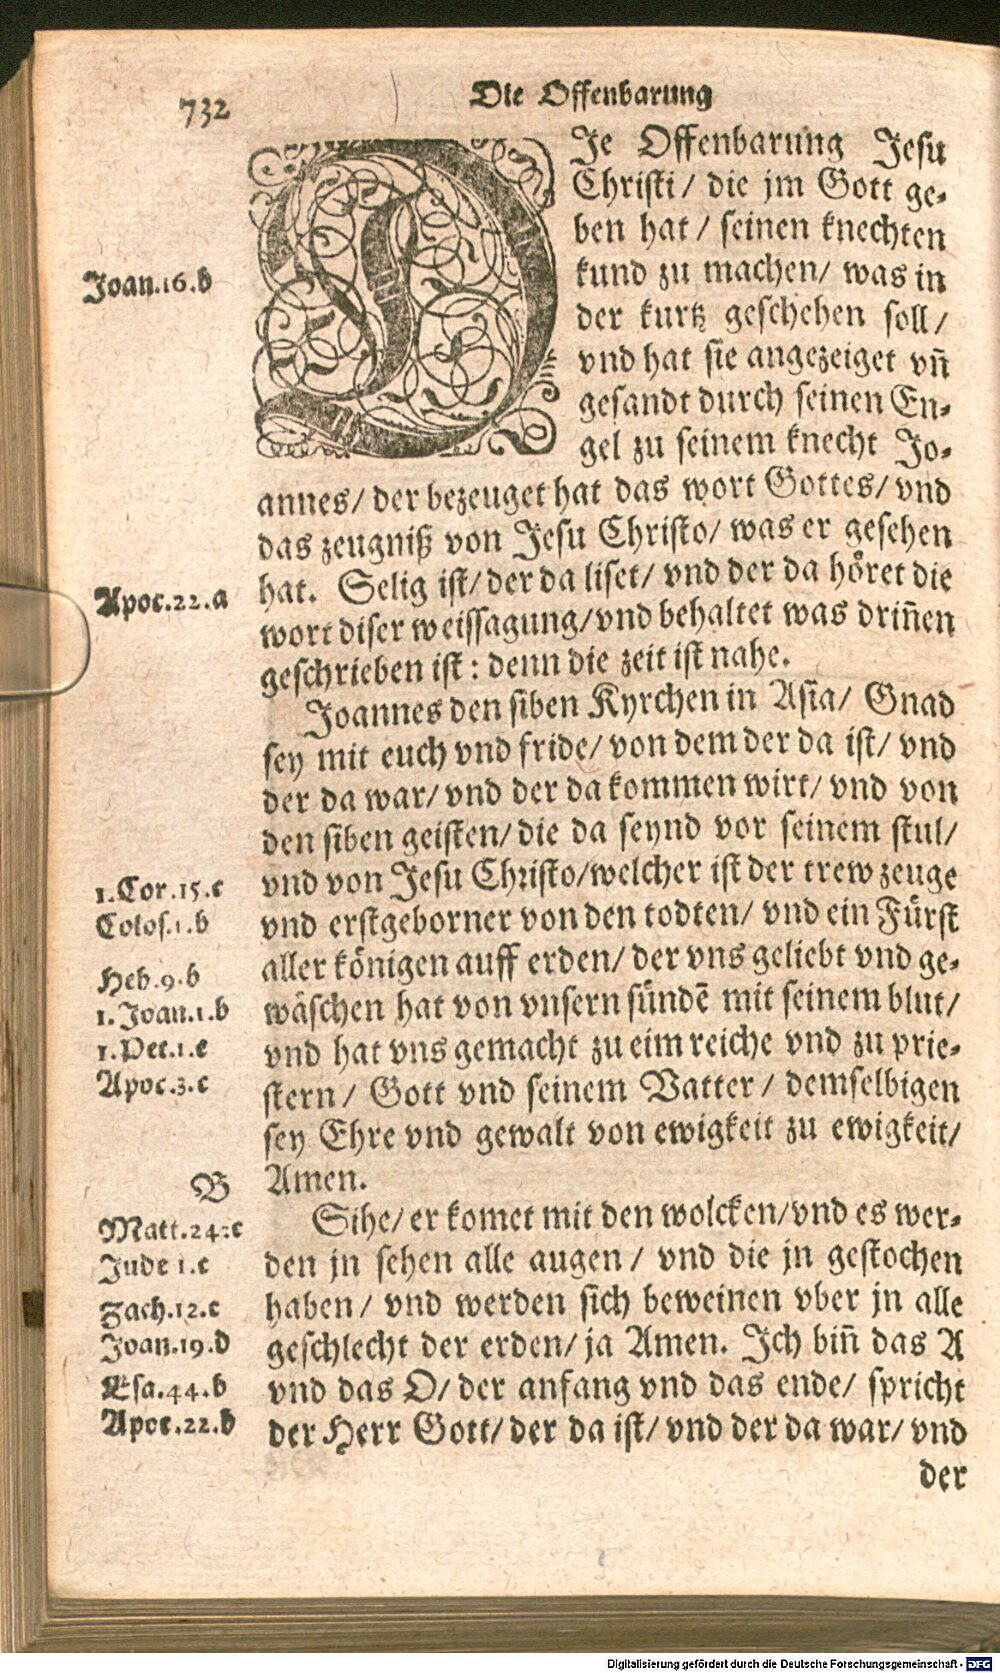 732
Die Offenbarung
DIe Offenbarung Jesu
Christi/ die jm Gott ge-
ben hat/ seinen knechten
kund zu machen/ was in
der kurtz geschehen soll/
vnd hat sie angezeiget vn̄
gesandt durch seinen En-
gel zu seinem knecht Jo-
annes/ der bezeuget hat das wort Gottes/ vnd
das zeugniß von Jesu Christo/ was er gesehen
hat. Selig ist/ der da liset/ vnd der da höret die
wort diser weissagung/ vnd behaltet was drin̄en
geschrieben ist: denn die zeit ist nahe.
Joannes den siben Kyrchen in Asia/ Gnad
sey mit euch vnd fride/ von dem der da ist/ vnd
der da war/ vnd der da kommen wirt/ vnd von
den siben geisten/ die da seynd vor seinem stul/
vnd von Jesu Christo/ welcher ist der trew zeuge
vnd erstgeborner von den todten/ vnd ein Fürst
aller königen auff erden/ der vns geliebt vnd ge-
wäschen hat von vnsern sündē mit seinem blut/
vnd hat vns gemacht zu eim reiche vnd zu prie-
stern/ Gott vnd seinem Vatter/ demselbigen
sey Ehre vnd gewalt von ewigkeit zu ewigkeit/
Amen.
Sihe/ er komet mit den wolcken/ vnd es wer-
den jn sehen alle augen/ vnd die jn gestochen
haben/ vnd werden sich beweinen vber jn alle
geschlecht der erden/ ja Amen. Ich bin̄ das A
vnd das O/ der anfang vnd das ende/ spricht
der Herr Gott/ der da ist/ vnd der da war/ vnd
der
Joan.16.b
Apoc.22.a
1.Cor.15.c
Colos.1.b
Heb.9.b
1.Joan.1.b
1.Pet.1.e
Apoc.3.c
B
Matt.24.c
Jude 1.c
Zach.12.c
Joan.19.d
Esa.44.b
Apoc.22.b
Digitalisierung gefördert durch die Deutsche Forschungsgemeinschaft - DFG